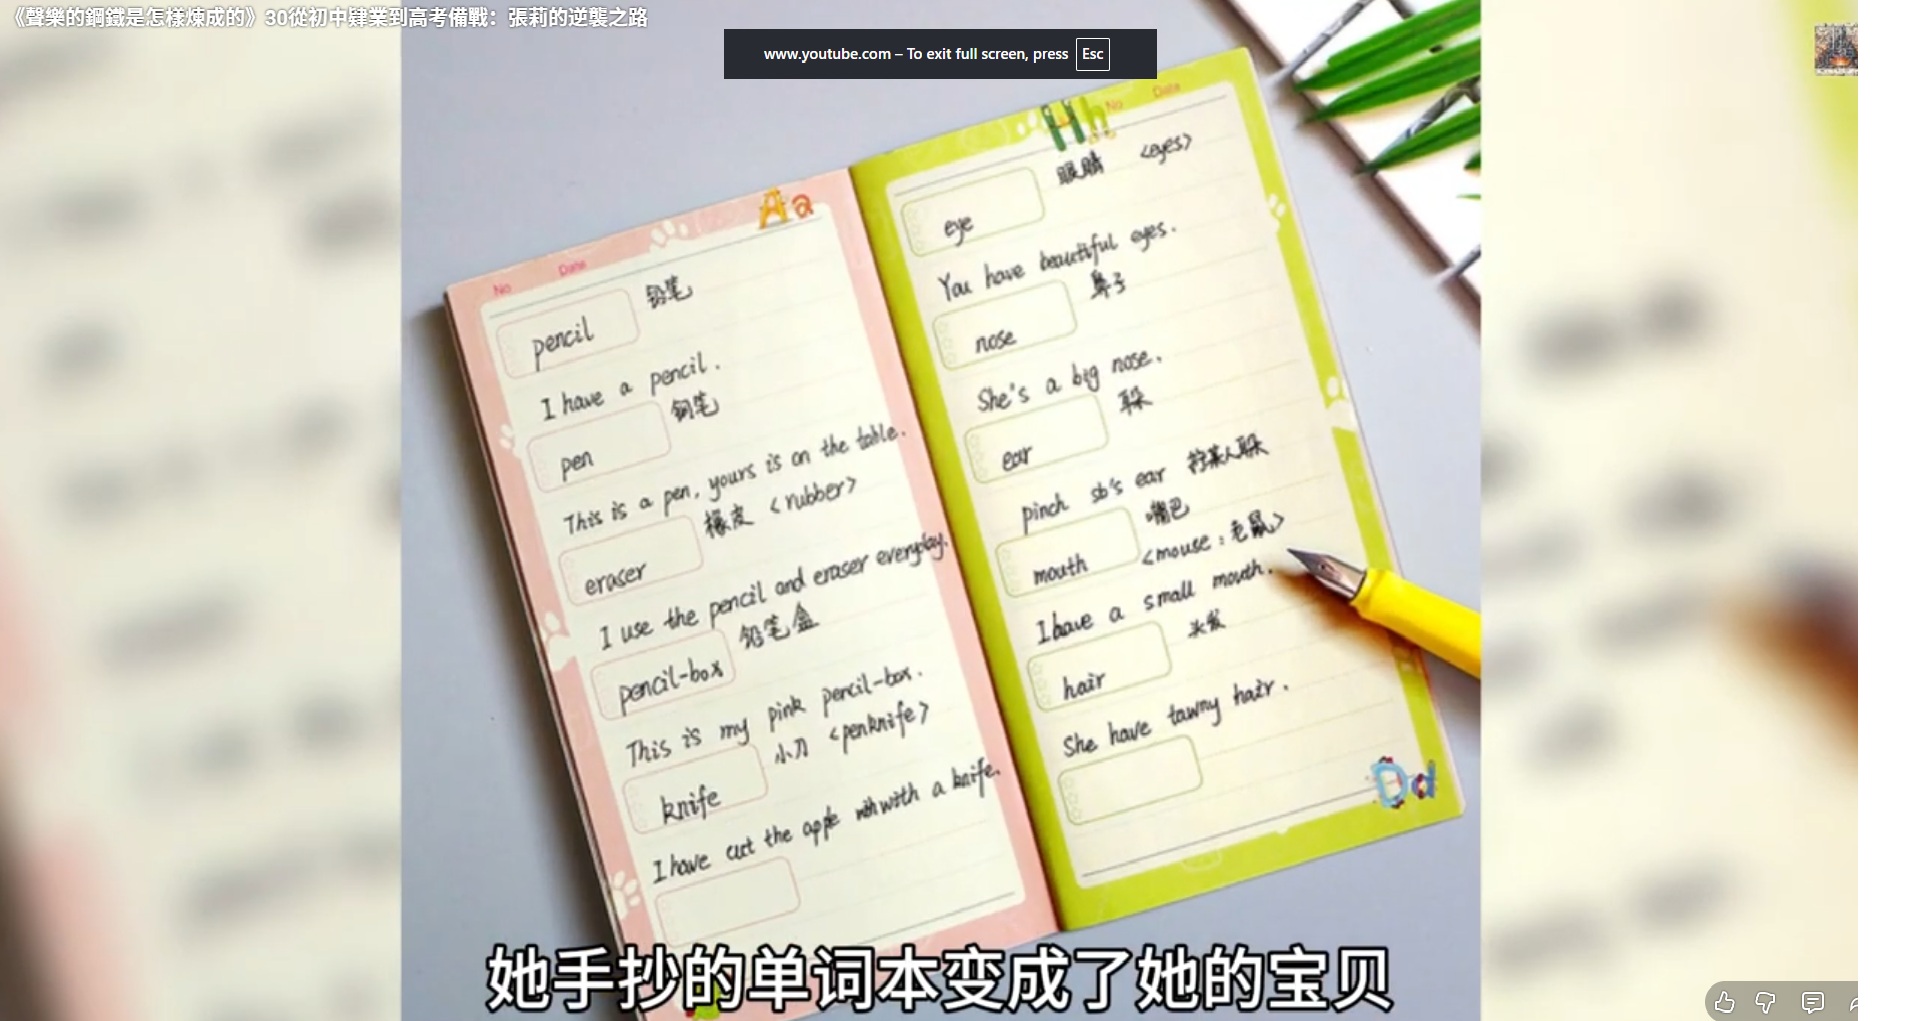 《聲樂的鋼鐵是怎樣煉成的》30從初中肄業到高考備戰：張莉的逆襲之路
www.youtube.com – To exit full screen, press Esc
Aa
No Date
pencil 铅笔
I have a pencil.
pen 钢笔
This is a pen, yours is on the table.
eraser 橡皮 <rubber>
I use the pencil and eraser everyday.
pencil-box 铅笔盒
This is my pink pencil-box.
knife 小刀 <penknife>
I have cut the apple with with a knife.
Hh
No Date
eye 眼睛 <eyes>
You have beautiful eyes.
nose 鼻子
She's a big nose.
ear 耳朵
pinch sb's ear 拧某人耳朵
mouth 嘴巴
<mouse: 老鼠>
I have a small mouth.
hair 头发
She have tawny hair.
Dd
她手抄的单词本变成了她的宝贝